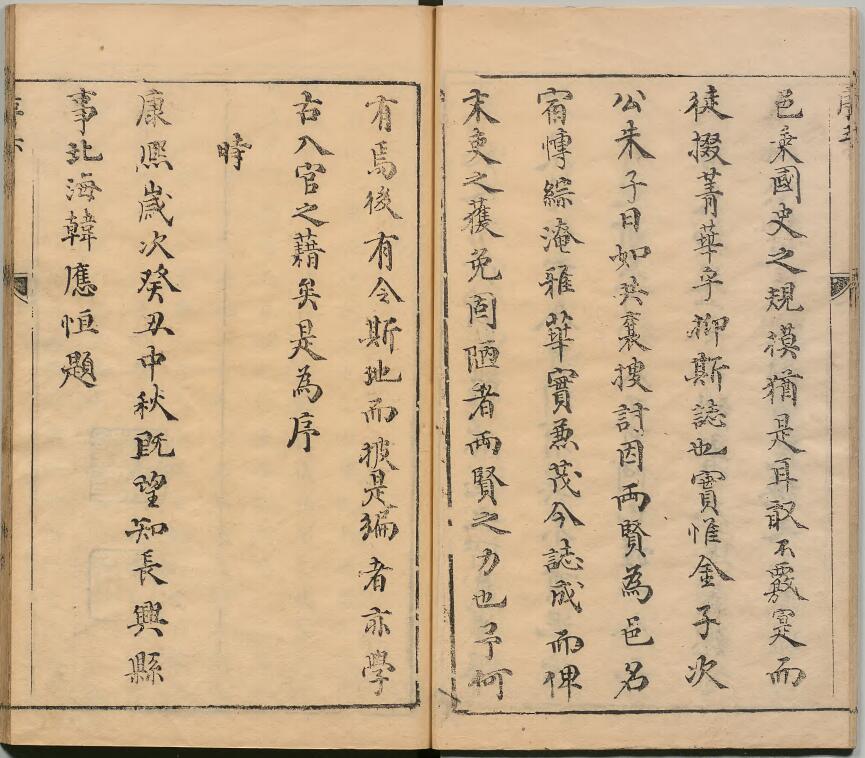 邑乘國史之規模猶是耳敢不覈寔而
徒掇菁華乎抑斯誌也實惟金子次
公朱子日如共襄搜討因兩賢為邑名
宿慱綜淹雅華實兼茂今誌成而俾
末吏之獲免固陋者兩賢之力也予何
有焉後有令斯地而披是編者亦學
古入官之藉矣是為序
時
康熙歲次癸丑中秋既望知長興縣
事北海韓應恒題